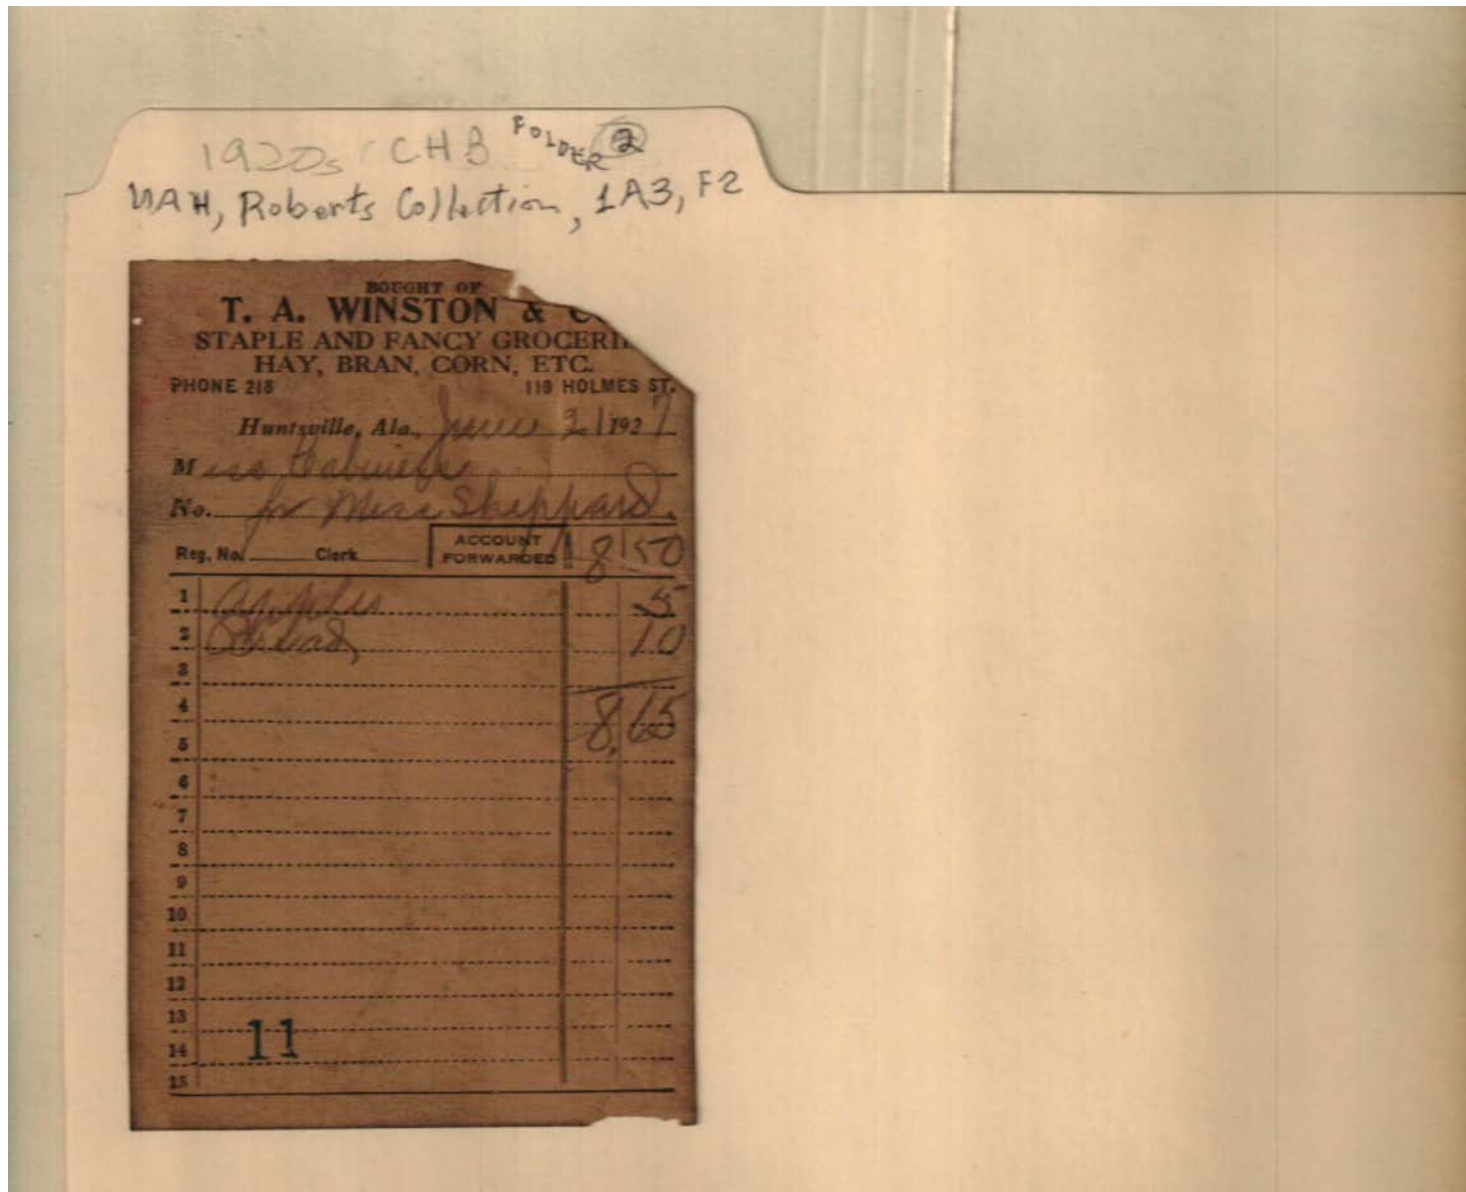 1920s CHB FOLDER 2
UAH, Roberts Collection, 1A3, F2
BOUGHT OF
T. A. WINSTON & C
STAPLE AND FANCY GROCERIE
HAY, BRAN, CORN, ETC.
PHONE 218 119 HOLMES ST.
Huntsville, Ala. June 21 1927
Miss
No. for Miss Sheppard.
Reg. No. Clerk ACCOUNT FORWARDED 8 50
1 Apples 5
2 Bread 10
3
4 8,65
5
6
7
8
9
10
11
12
13
14 11
15